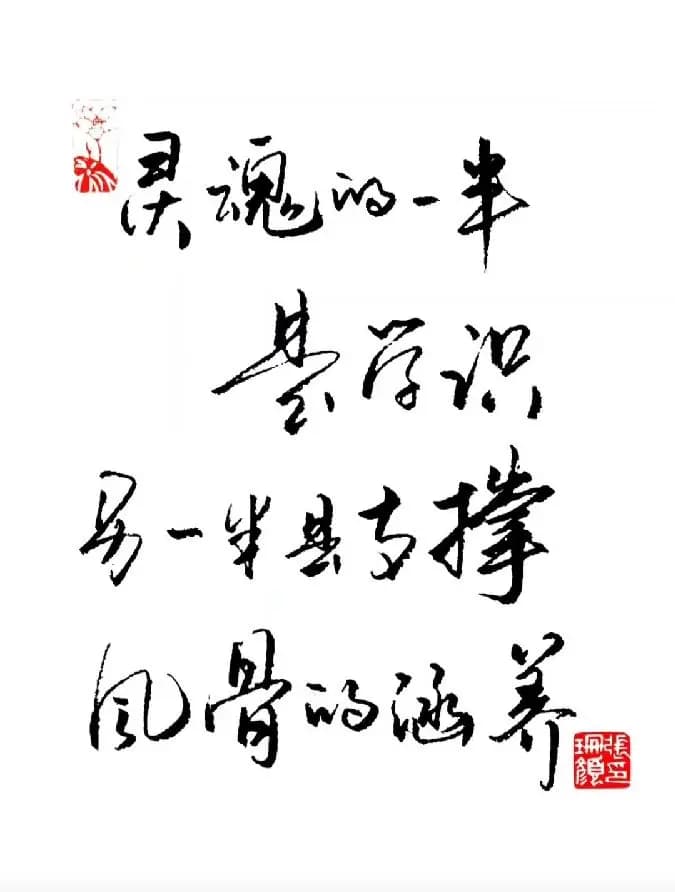 灵魂的一半
是学识
另一半是支撑
风骨的涵养